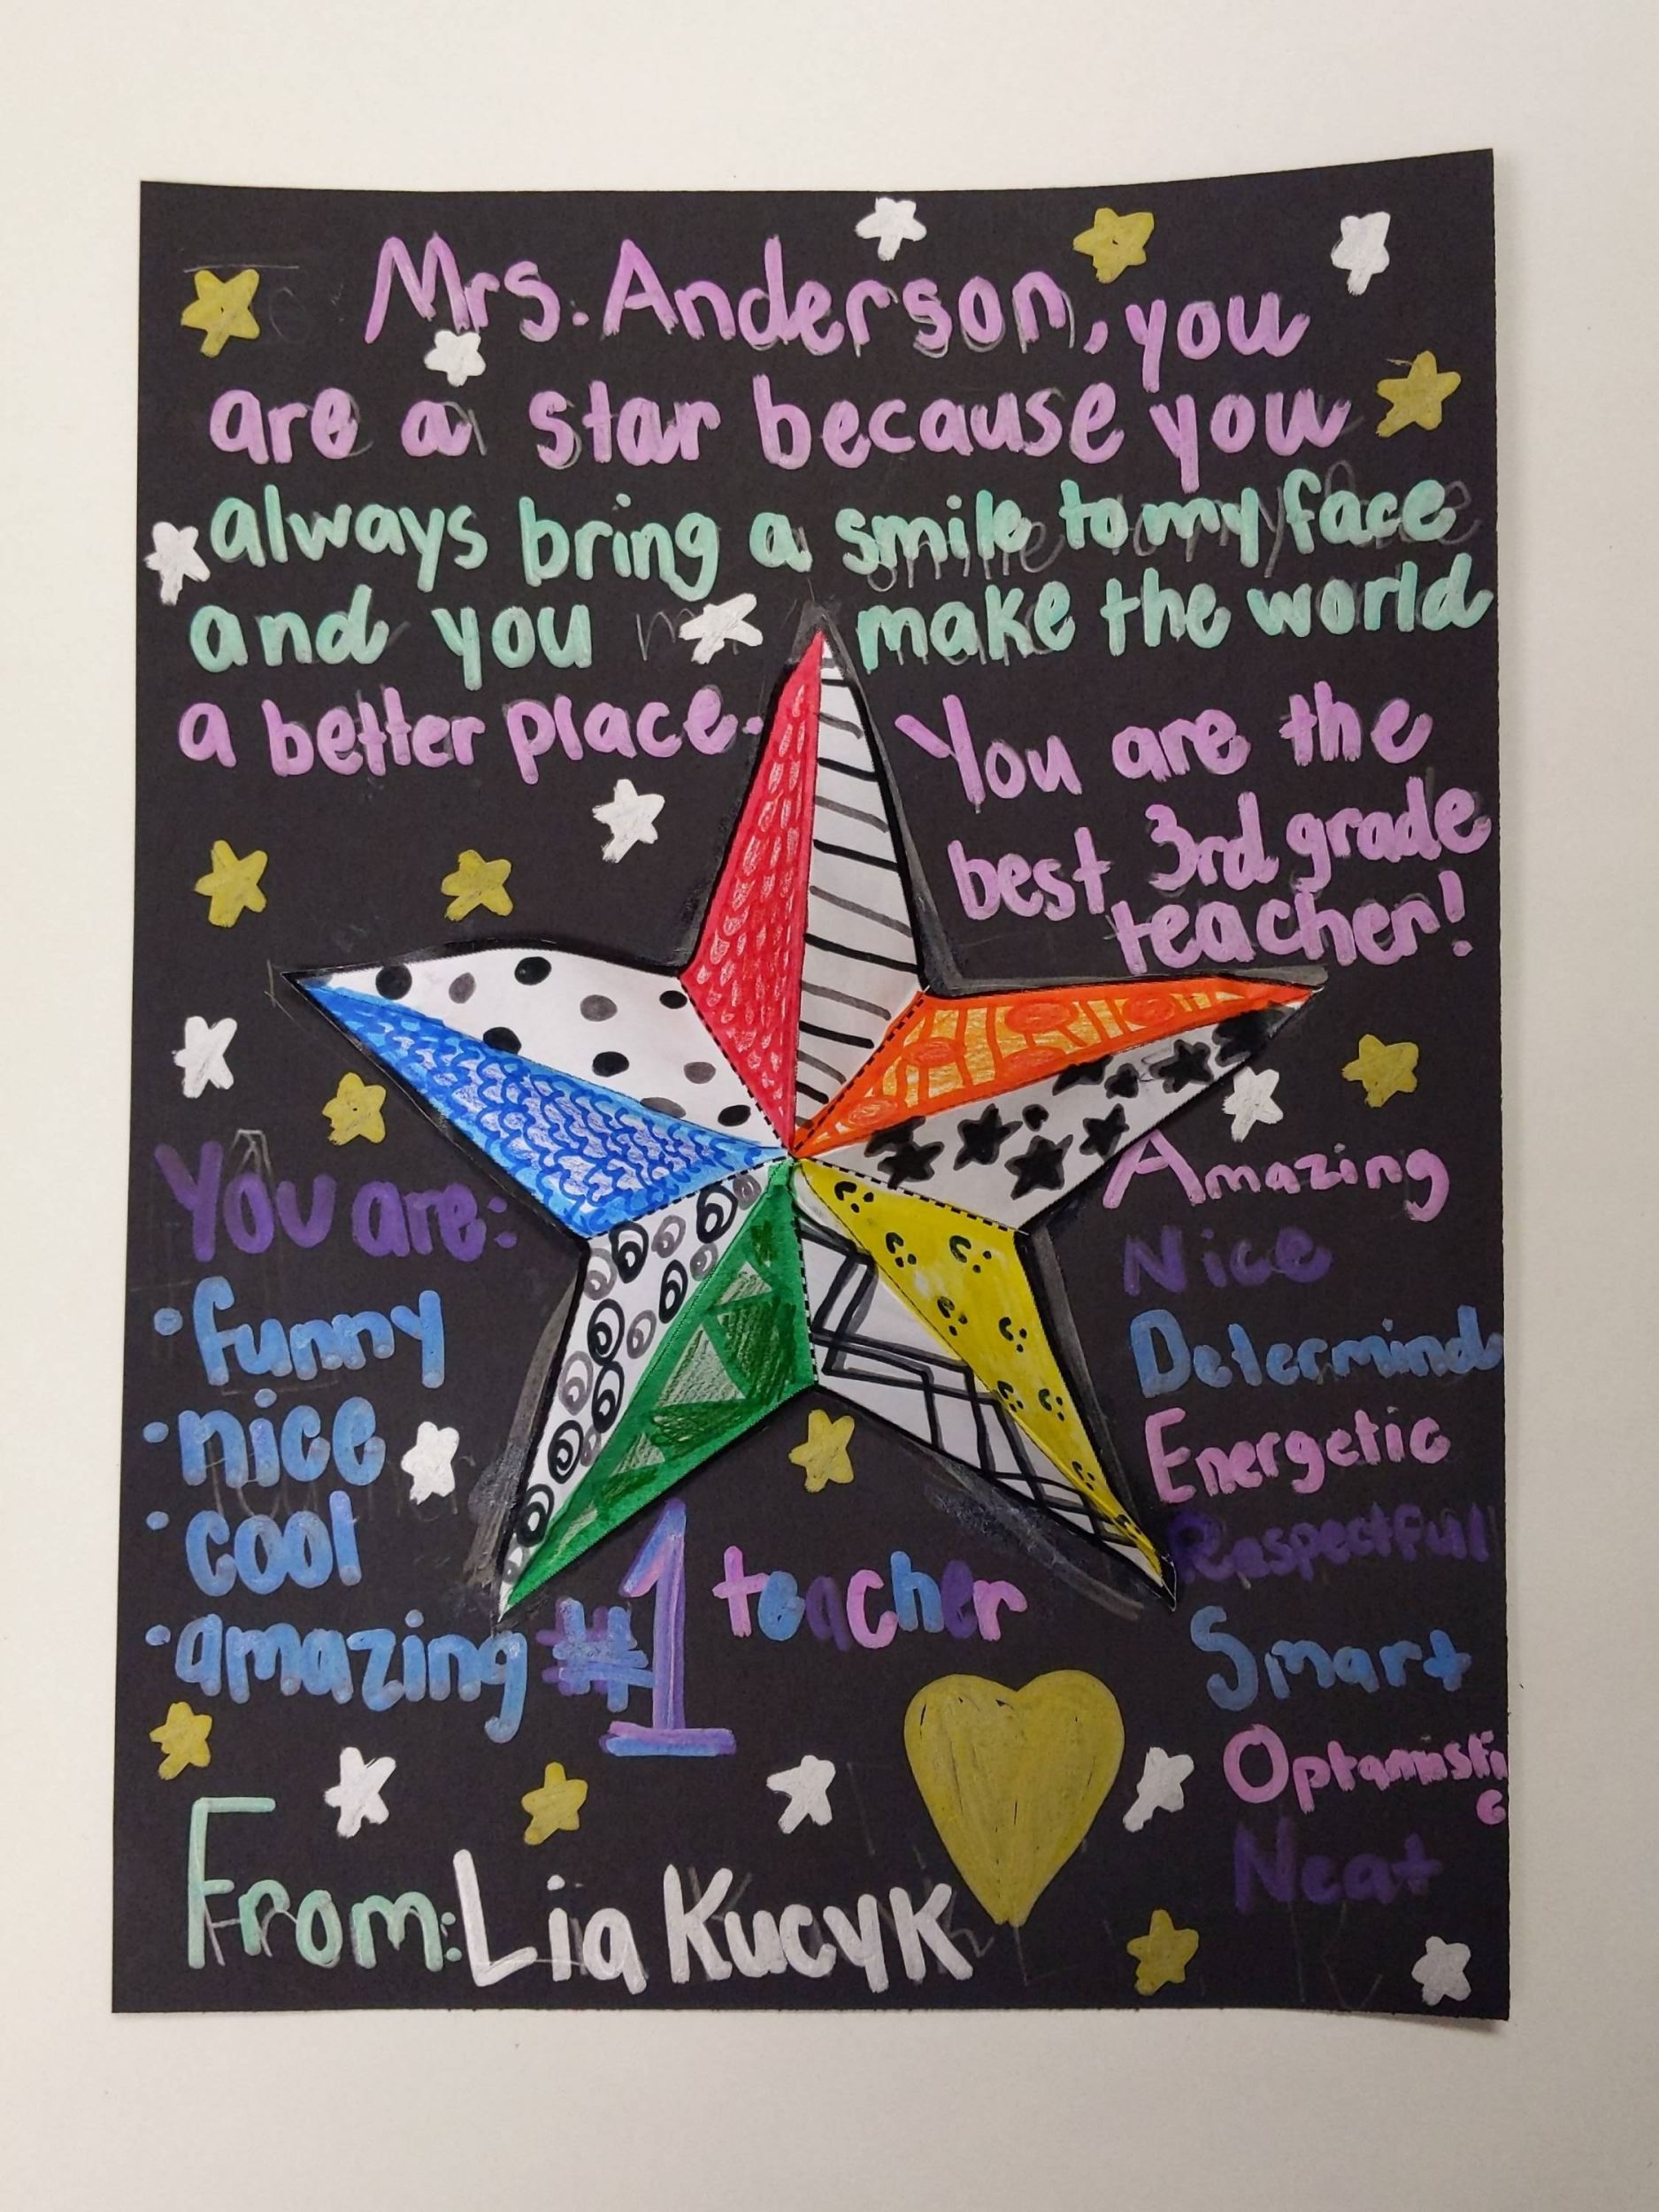 Mrs. Anderson, you
are a star because you
always bring a smile to my face
and you make the world
a better place.
You are the
best 3rd grade
teacher!
You are:
• funny
• nice
• cool
• amazing
#1 teacher
Amazing
Nice
Determind
Energetic
Raspectfull
Smart
Optamisti
c
Neat
From: Lia Kucyk